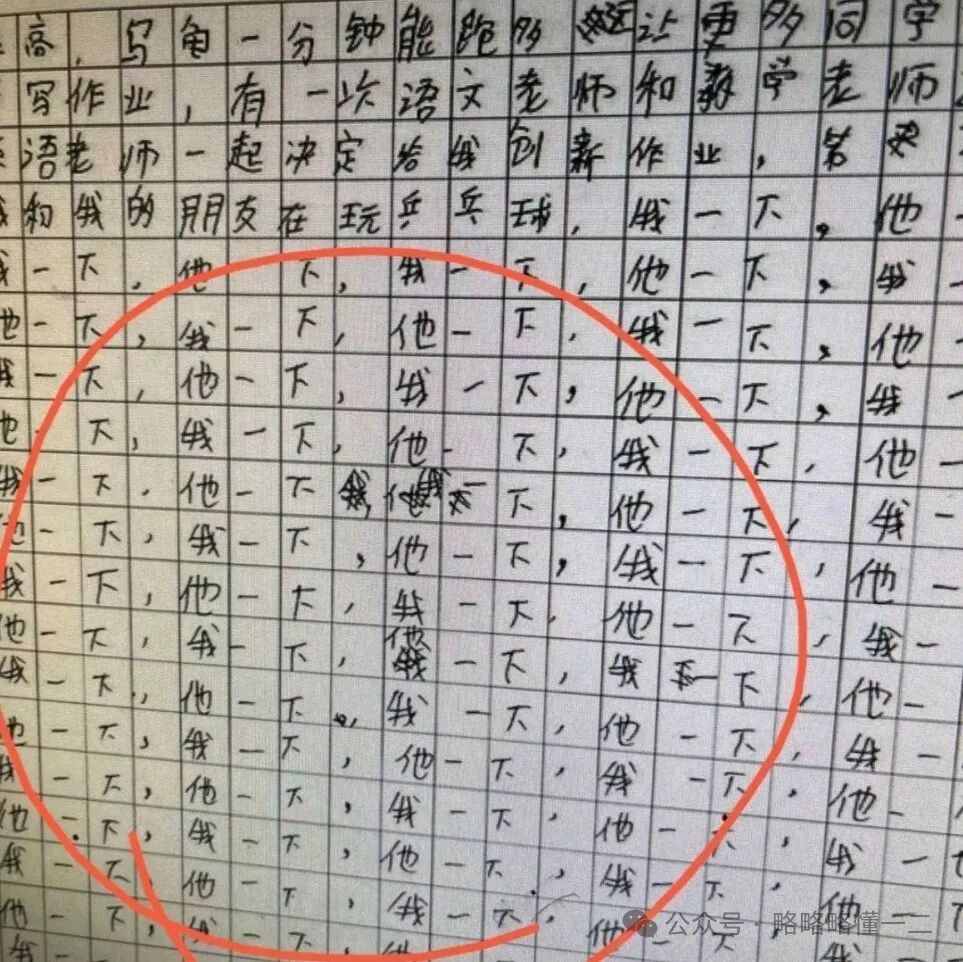 高，写龟一分钟能跑多远让更多同学
写作业，有一次语文老师和数学老师
语老师一起决定给我创新作业，
我和我的朋友在玩乒乓球，我一下，他一
我一下，他下，我一下，他一下，我一
他一下，我一下，他一下，我一下，他一
我一下，他一下，我一下，他一下，我一
他一下，我一下，他一下，我一下，他一
我一下，他一下我一下，他一下，我一
他一下，我一下，他一下，我一下，他一
我一下，他一下，我一下，他一下，我一
他一下，我一下，他一下，我一下，他一
我一下，他一下，我一下，他一下，我一
他一下，我一下，他一下，我一下，他一
我一下，他一下，我一下，他一下，我一
他一下，我一下，他一下，我一下，他
我一下，他一下，我一下，他一下，我
他一下，我一下，他
我
公众号·略略略懂一二